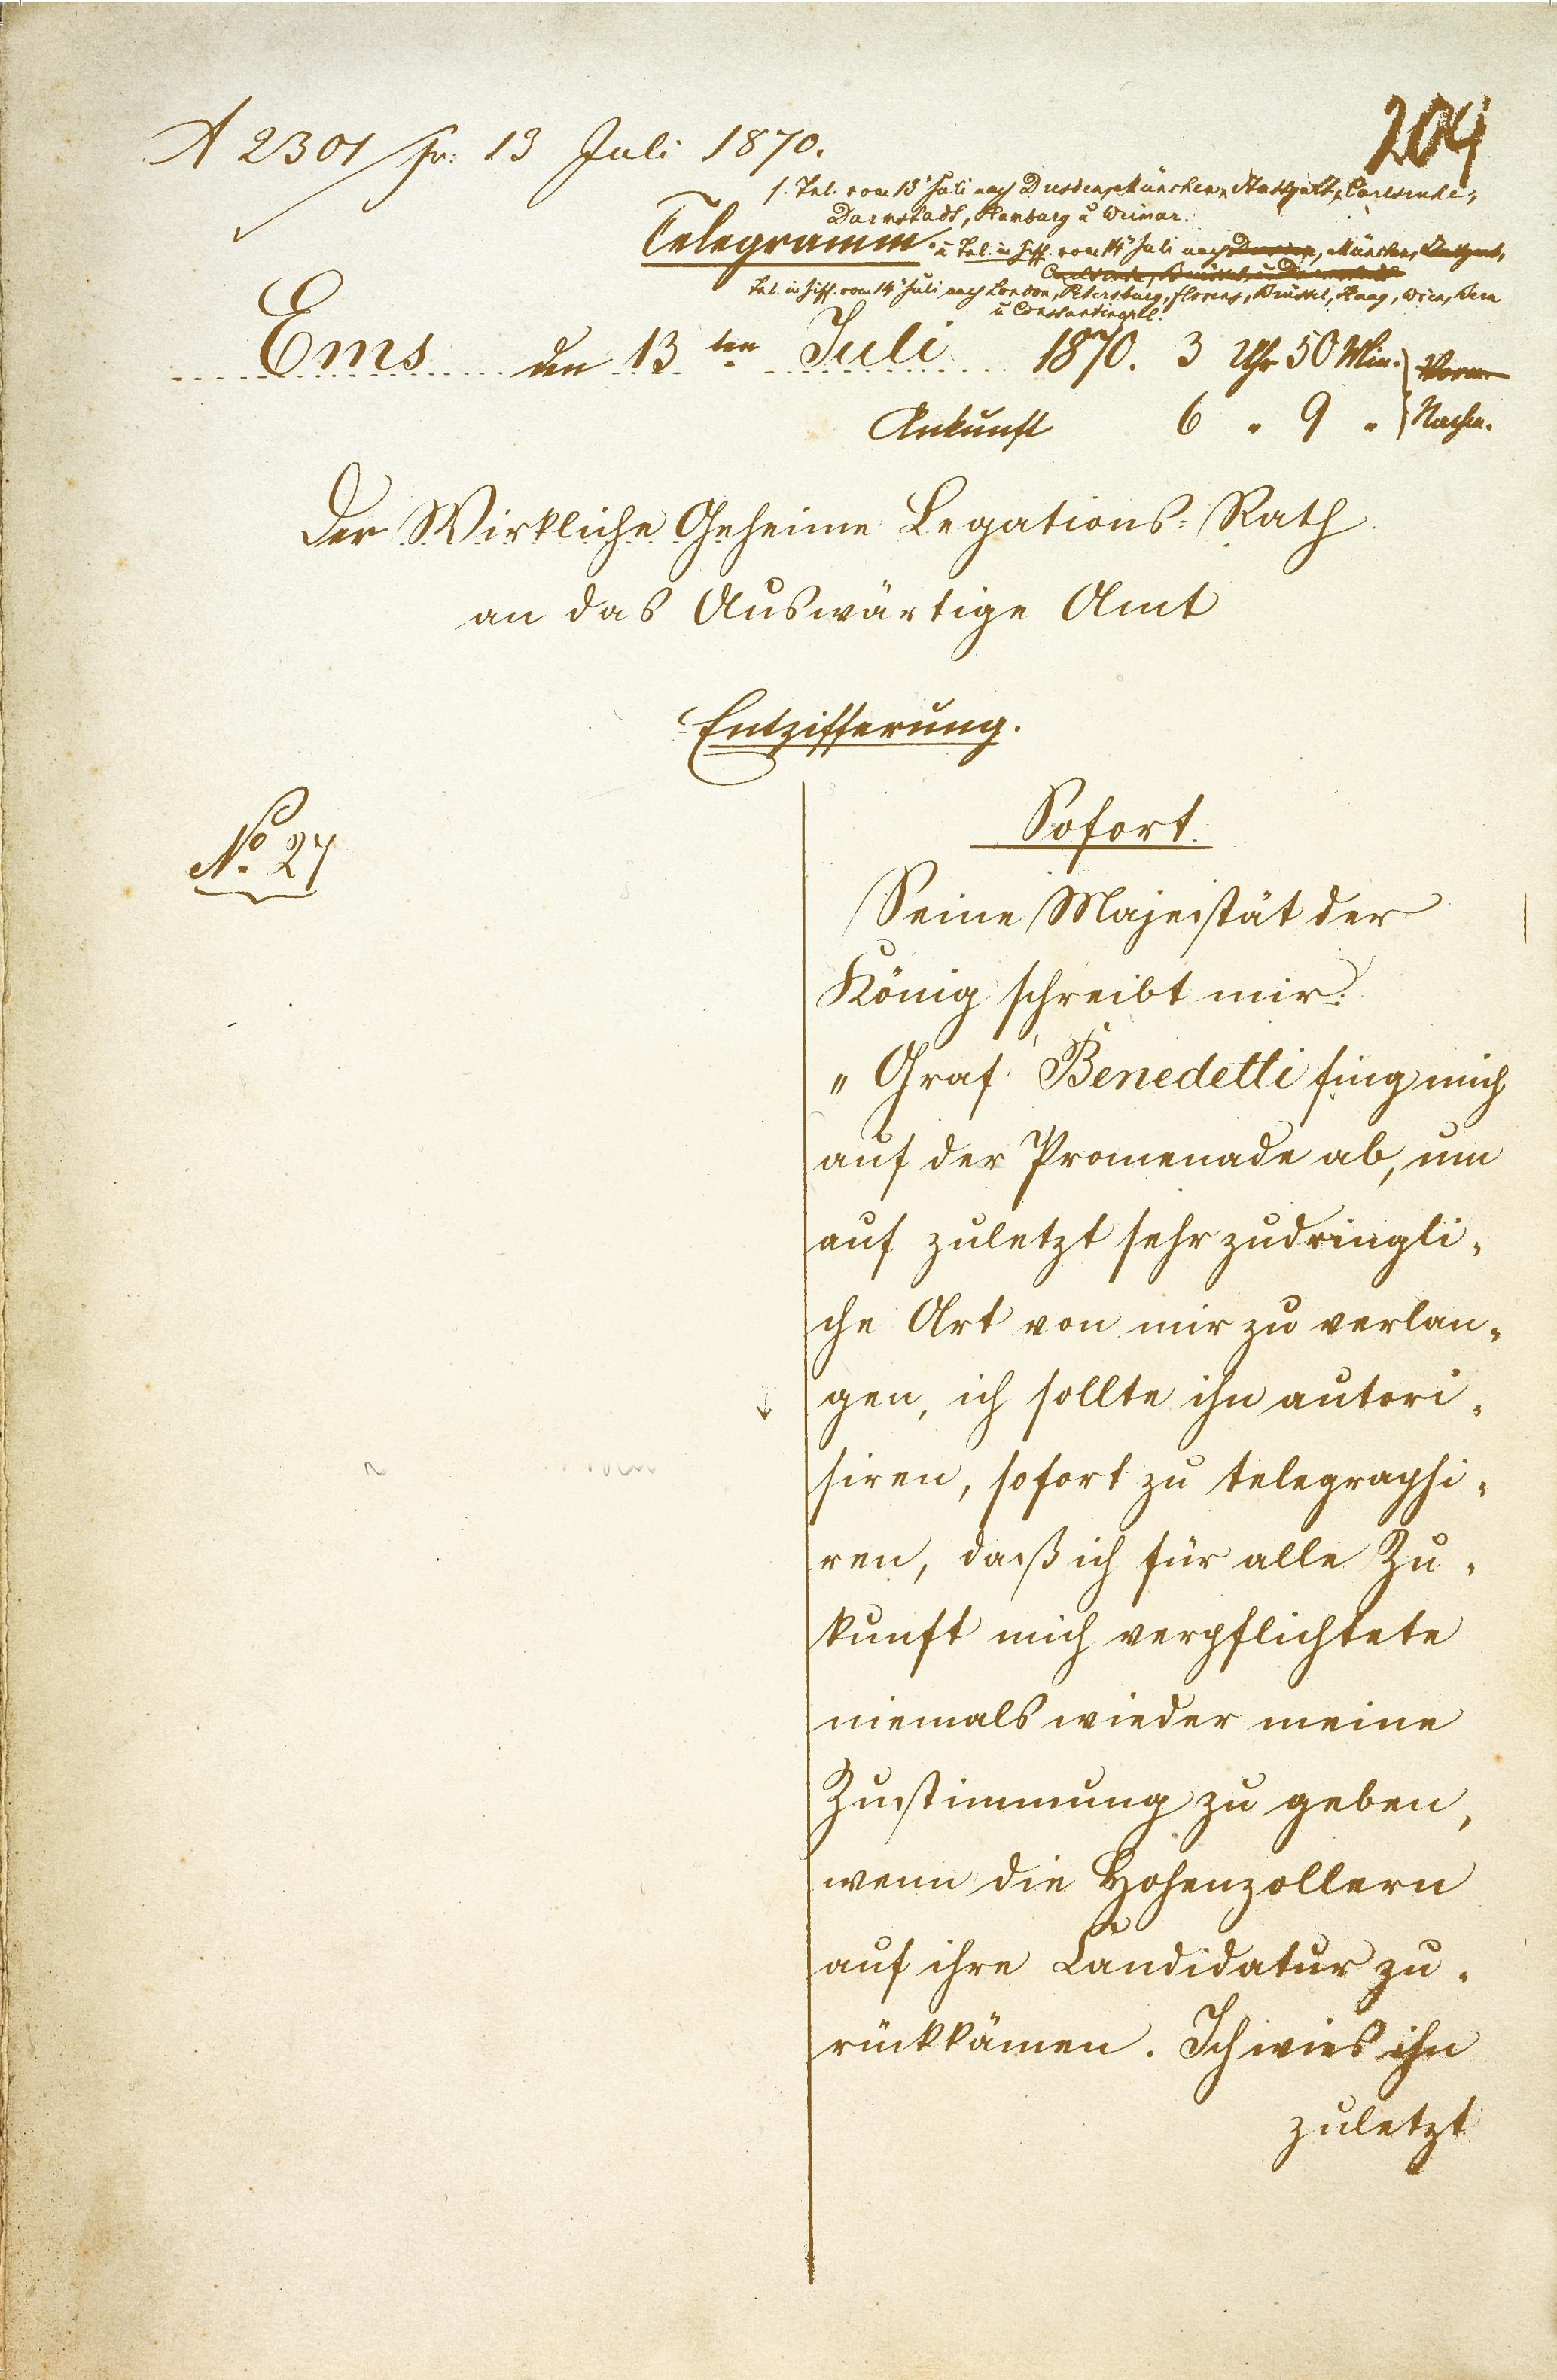 A 2301 pr: 13 Juli 1870.
204
s. Tel. vom 13' Juli nach Dresden, München, Stuttgart, Carlsruhe,
Darmstadt, Hamburg u Weimar.
Telegramm
u Tel. in Ziff. vom 14' Juli nach Dresden, München, Stuttgart,
Carlsruhe, Brüssel u Darmstadt
Tel. in Ziff. vom 14' Juli nach London, Petersburg, Florenz, Brüssel, Haag, Wien, Bern
u Constantinopel.
Ems den 13 ten Juli 1870. 3 Uhr 50 Min. Vorm.
Ankunft 6 " 9 " Nachm.
Der Wirkliche Geheime Legations-Rath
an das Auswärtige Amt
Entzifferung.
No. 27
Sofort.
Seine Majestät der
König schreibt mir:
„Graf Benedetti fing mich
auf der Promenade ab, um
auf zuletzt sehr zudringli-
che Art von mir zu verlan-
gen, ich sollte ihn autori-
siren, sofort zu telegraphi-
ren, daß ich für alle Zu-
kunft mich verpflichtete
niemals wieder meine
Zustimmung zu geben,
wenn die Hohenzollern
auf ihre Candidatur zu-
rückkämen. Ich wies ihn
zuletzt